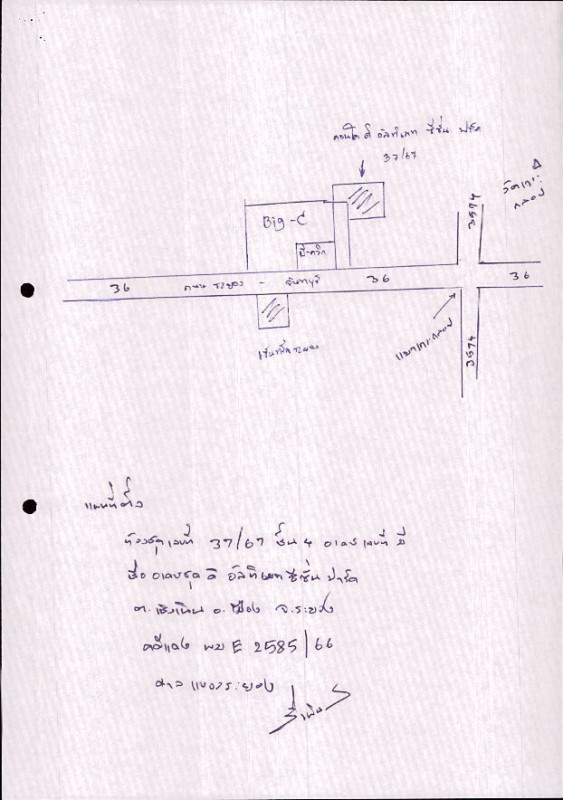 คอนโด ดิ อัลทิเมท ซีซั่น ปาร์ค
37/67
วัดเกาะ
กลอย
3574
Big-C
บี-ควิก
36 ถนน ระยอง - จันทบุรี 36 36
แยกเกาะกลอย
3574
เซ็นทรัลระยอง
แผนที่ตั้ง
ห้องชุดเลขที่ 37/67 ชั้น 4 อาคารเลขที่ บี
ชื่ออาคารชุด ดิ อัลทิเมท ซีซั่น ปาร์ค
ต.เชิงเนิน อ.เมือง จ.ระยอง
คดีแดง ผบ E 2585/66
ศาลแขวงระยอง